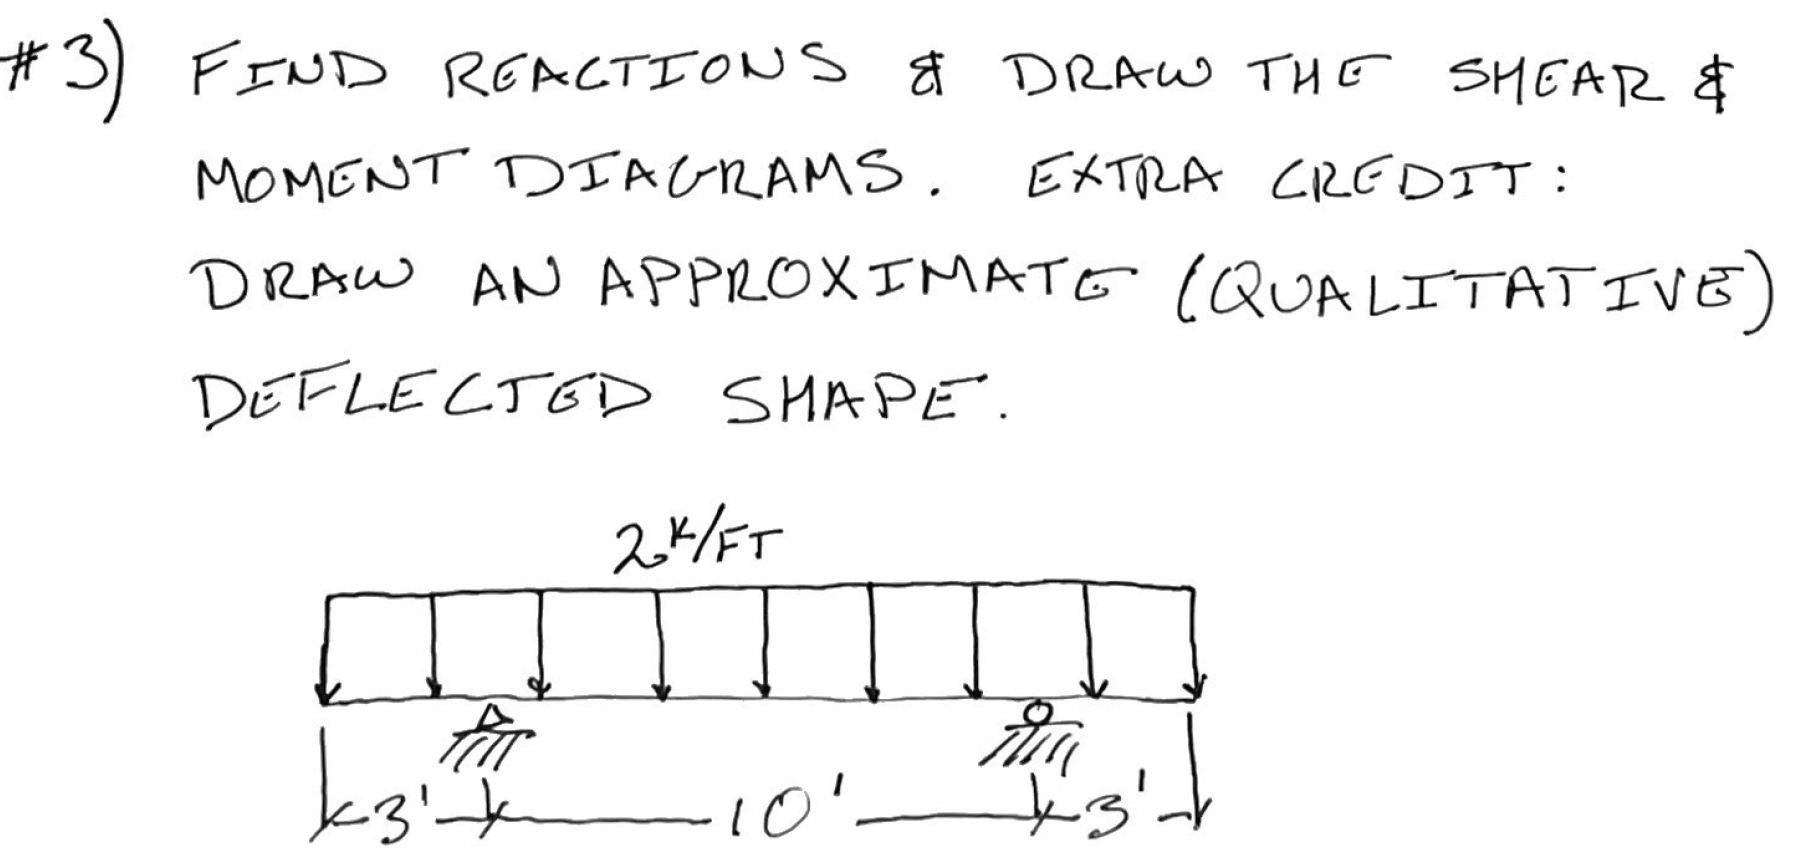 #3) FIND REACTIONS & DRAW THE SHEAR &
MOMENT DIAGRAMS. EXTRA CREDIT:
DRAW AN APPROXIMATE (QUALITATIVE)
DEFLECTED SHAPE.
2K/FT
3' 10' 3'